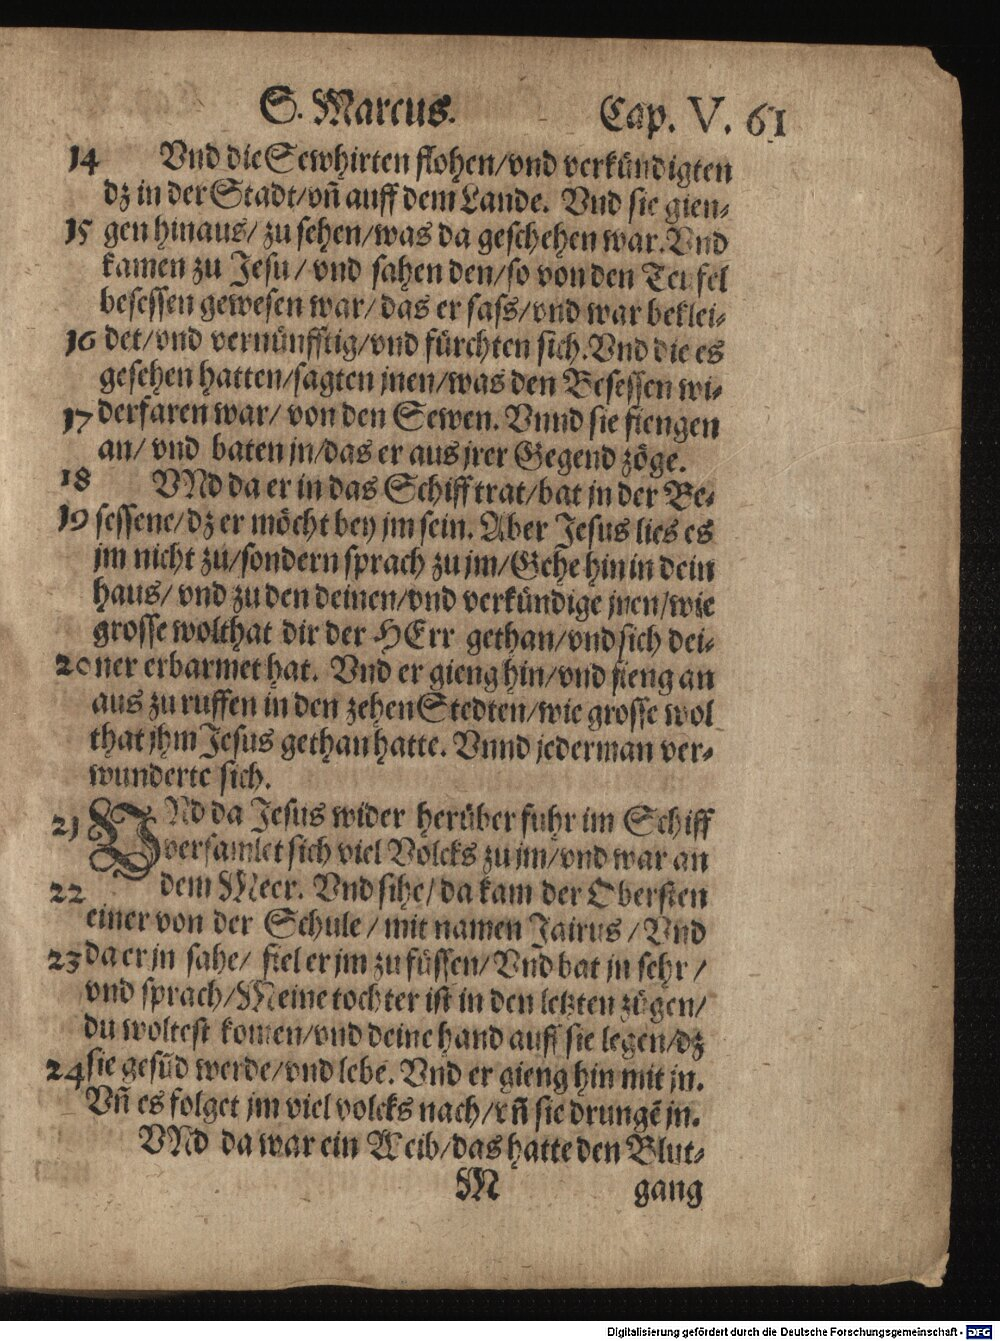 S. Marcus. Cap. V. 61
14 Vnd die Sewhirten flohen/vnd verkündigten
dz in der Stadt/vñ auff dem Lande. Vnd sie gien-
15 gen hinaus/ zu sehen/was da geschehen war. Vnd
kamen zu Jesu/ vnd sahen den/so von den Teufel
besessen gewesen war/ das er sass/vnd war beklei-
16 det/vnd vernünfftig/vnd fürchten sich. Vnd die es
gesehen hatten/sagten jnen/was den Besessen wi-
17 derfaren war/ von den Sewen. Vnnd sie fiengen
an/ vnd baten jn/das er aus jrer Gegend zöge.
18 VNd da er in das Schiff trat/bat jn der Be-
19 sessene/dz er möcht bey jm sein. Aber Jesus lies es
jm nicht zu/sondern sprach zu jm/Gehe hin in dein
haus/ vnd zu den deinen/vnd verkündige jnen/wie
grosse wolthat dir der HErr gethan/vnd sich dei-
20 ner erbarmet hat. Vnd er gieng hin/vnd fieng an
aus zu ruffen in den zehen Stedten/wie grosse wol
that jhm Jesus gethan hatte. Vnnd jederman ver-
wunderte sich.
21 VNd da Jesus wider herüber fuhr im Schiff
versamlet sich viel Volcks zu jm/vnd war an
22 dem Meer. Vnd sihe/ da kam der Obersten
einer von der Schule/ mit namen Jairus/ Vnd
23 da er jn sahe/ fiel er jm zu füssen/ Vnd bat jn sehr/
vnd sprach/Meine tochter ist in den letzten zügen/
du woltest komen/vnd deine hand auff sie legen/dz
24 sie gesūd werde/vnd lebe. Vnd er gieng hin mit jn.
Vñ es folget jm viel volcks nach/vñ sie drungē jn.
VNd da war ein Weib/das hatte den Blut-
M gang
Digitalisierung gefördert durch die Deutsche Forschungsgemeinschaft - DFG